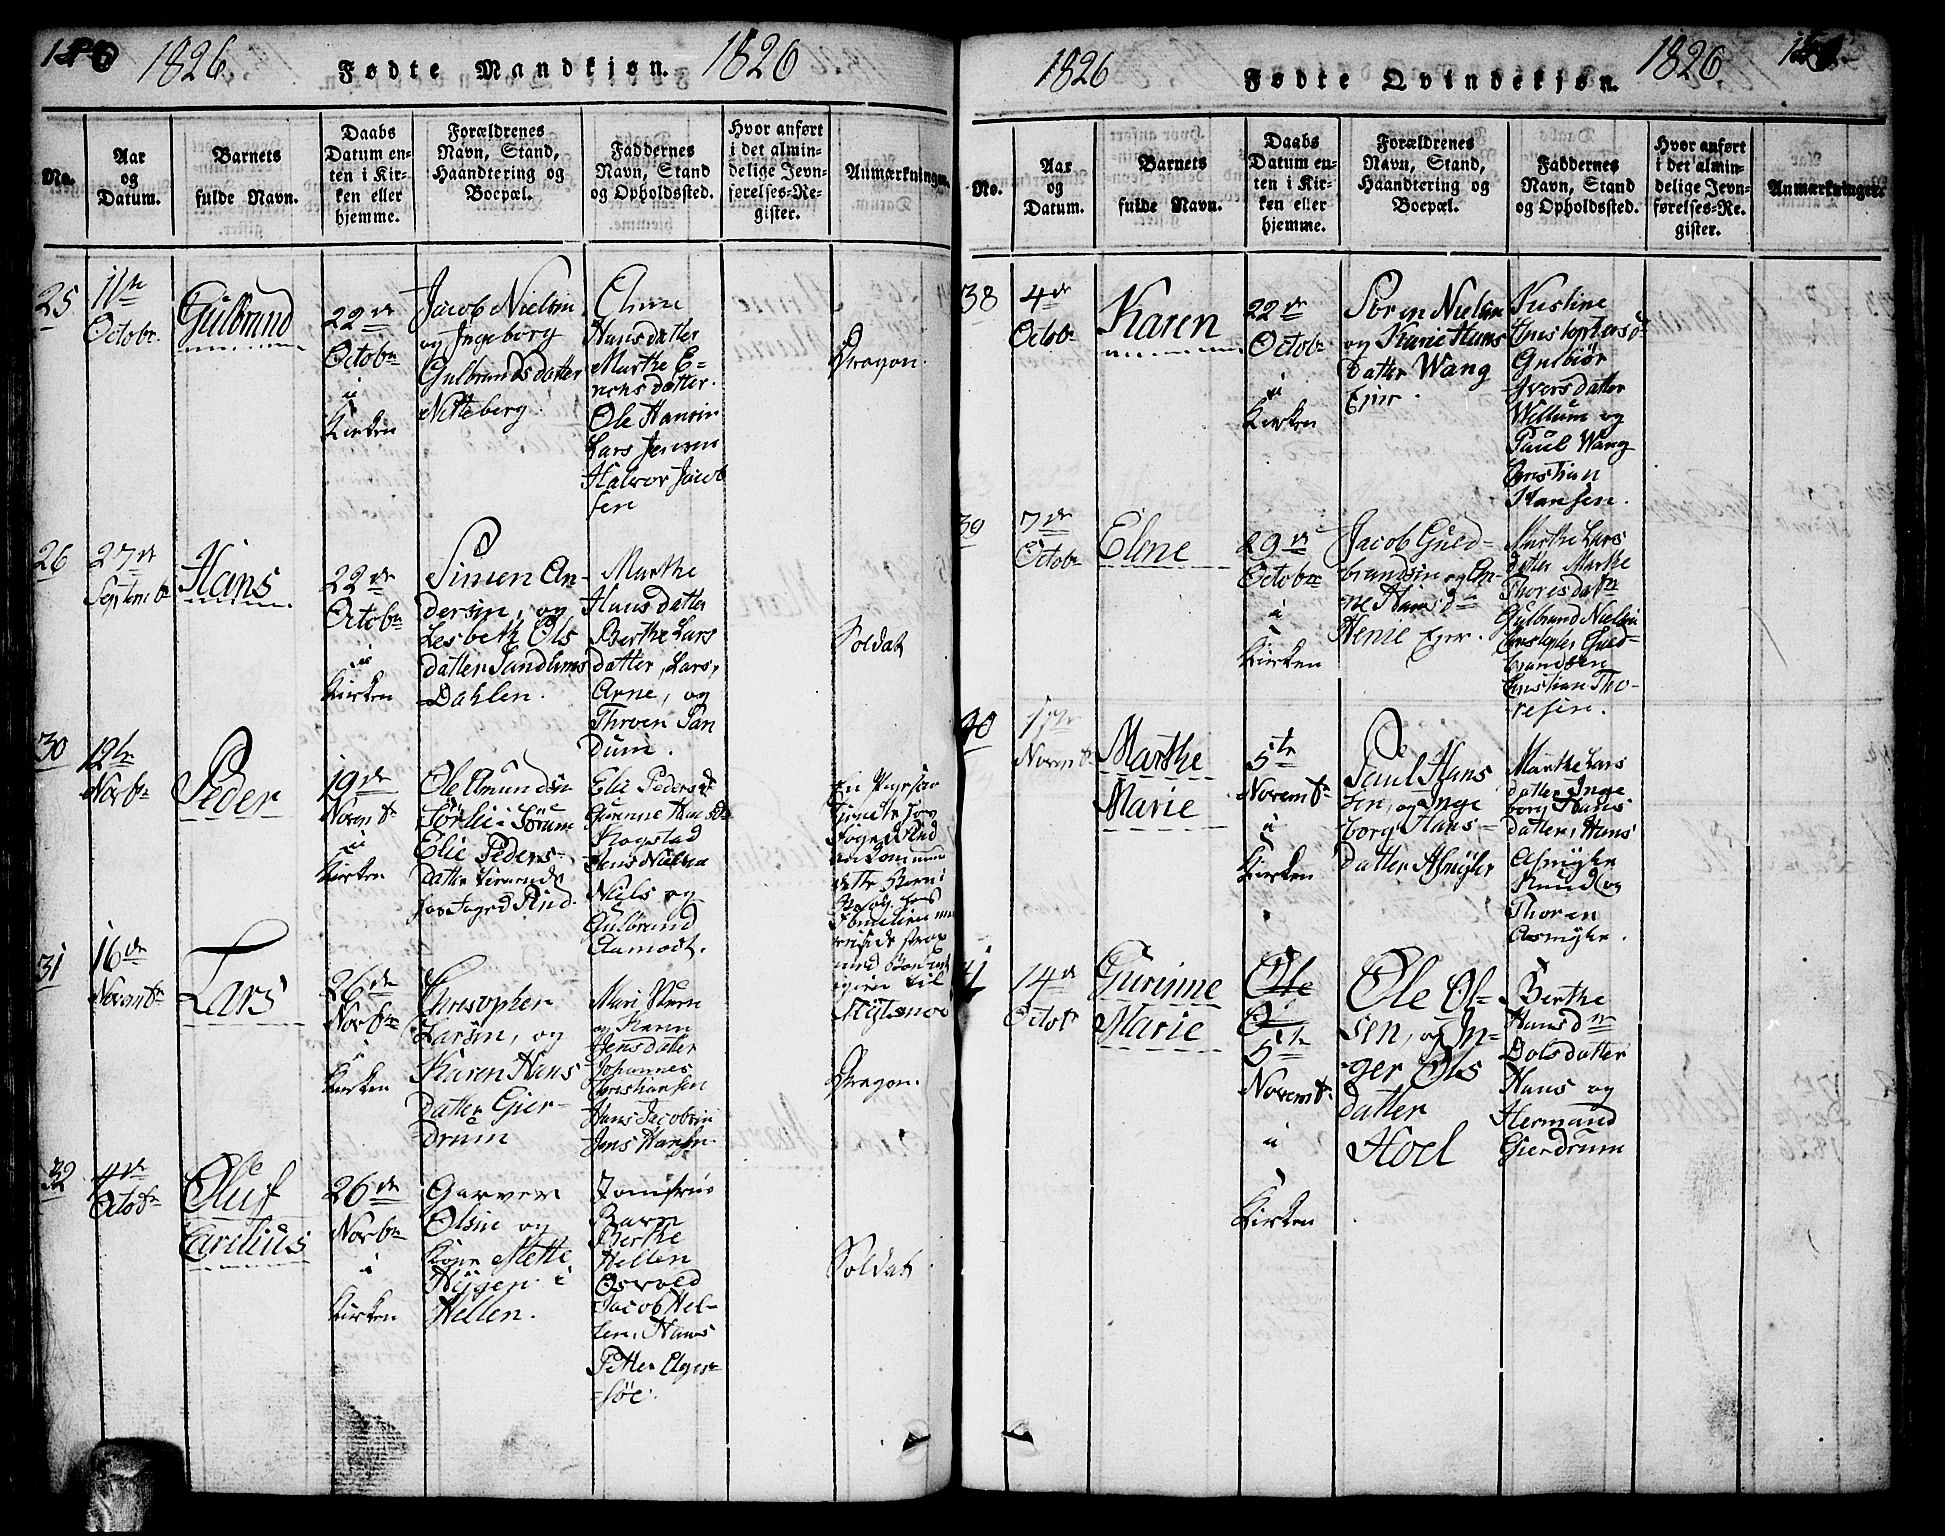 1826
Fødte Mandkjøn.
1826
No.
Aar
og
Datum.
Barnets
fulde Navn.
Daabs
Datum en-
ten i Kir-
ken eller
hjemme.
Forældrenes
Navn, Stand,
Haandtering og
Boepæl.
Faddernes
Navn, Stand
og Opholdssted.
Hvor anført
i det almin-
delige Jevn-
førelses-Re-
gister.
Anmærkninger.
25
11te
Octobr.
Gulbrand
22de
Octobr
i
Kirken
Jacob Nielsen
og Ingeborg
Gulbrandsdatter
Nitteberg.
Hansdatter
Marthe E-
richsdatter.
Ole Hansen
Lars Jensen
Halvor Jacob
sen
Dragon.
26
27de
Septembr
Hans
22de
Octobr
i
Kirken
Simen An-
dersen, og
Lisbeth Ols
datter Sandums
Dahlen.
Marthe
Hansdatter
Berthe Lars
datter, Lars,
Arne, og
Thoren San
dum.
Soldat
30
12te
Novbr
Peder
19de
Novembr
i
Kirken
Ole Amundsen
Sørli i Sørum
Elie Peders-
datter tienende
hos Foged Rind.
Elie Pedersd
Gurenne Hansd
Rogstad
Jens Nielsen
Niels og
Gulbrand
Aamodt.
31
16de
Novembr
Lars
26de
Novbr
i
Kirken
Christopher
Larsen, og
Karen Hans
datter Gier-
drum
Mari Steen
og Karen
Jensdatter
Johannes
Christiansen
Hans Jacobsen
Jens Hansen.
Dragon.
32
4de
Octobr
Oluf
Carelius
26de
Novbr
i
Kirken
Garver
Olsen og
Kone Mette
Hygen i
Hellen.
Jomfrue
Barn
Berthe
Hellen
Osvold
Jacob Hel-
len, Hans
Petter Elges-
søe.
Soldat.
1826
Fødte Qvindekjøn.
1826.
No.
Aar
og
Datum.
Barnets
fulde Navn.
Daabs
Datum en-
ten i Kir-
ken eller
hjemme.
Forældrenes
Navn, Stand,
Haandtering og
Boepæl.
Faddernes
Navn, Stand
og Opholdssted.
Hvor anført
i det almin-
delige Jevn-
førelses-Re-
gister.
Anmærkninger.
38
4de
Octobr
Karen
22de
Octobr
i
Kirken
Søren Nielsen
og Karie Hans
datter Wang
Eier.
Kirstine
Gulbiør
Iversdatter
Willum og
Paul Wang
Christian
Hansen.
39
7de
Octobr
Eline
29de
Octobr
i
Kirken
Jacob Guld-
brandsen og An-
ne Hansd
Henie Eier.
Marthe Lars
datter Marthe
Thoresdatr
Gulbrand Nielsen
Christopher Guld-
brandsen
Christian Tho-
resen.
40
Novembr
Marthe
Marie
5te
Novembr
i
Kirken
Paul Hans
sen, og Inge
borg Hans-
datter Asmyhr
Marthe Lars
datter Inge
borg Hans
datter, Hans
Asmyhr
Knud og
Thoren
Asmyhr.
41
14de
Octobr
Gurinne
Marie
5te
Novembr
i
Kirken
Ole Ol-
sen, og In-
ger Ols
datter
Hoel
Berthe
Hansdr
Dolsdatter
Hans og
Hermand
Gierdrum